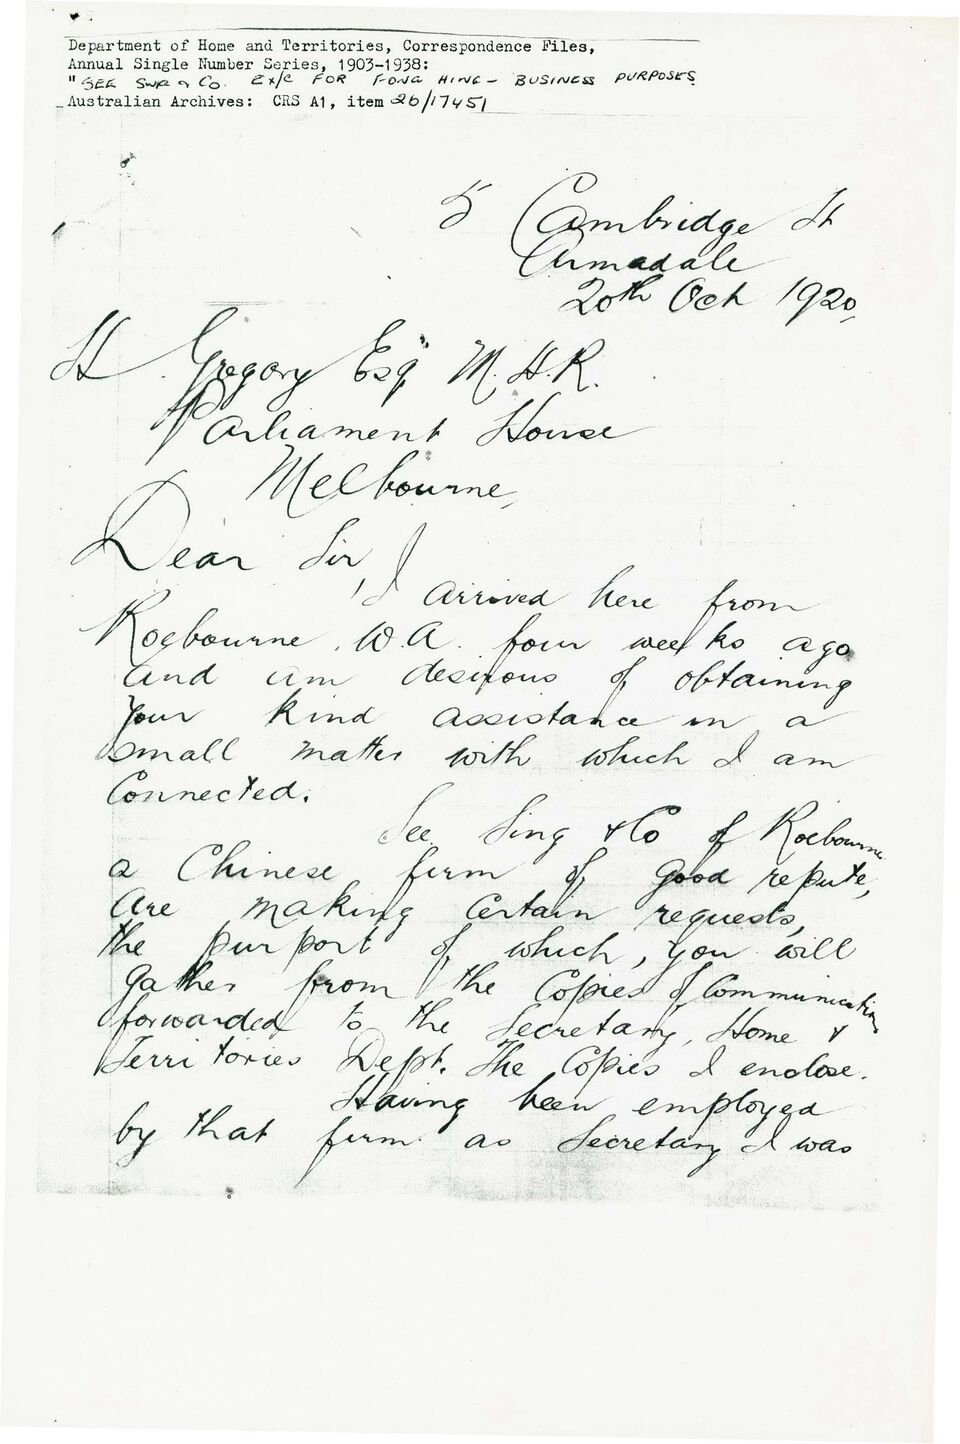 Department of Home and Territories, Correspondence Files,
Annual Single Number Series, 1903-1938:
"SEE SWE & Co. Ex/c FOR FONG HING - BUSINESS PURPOSES
Australian Archives: CRS A1, item 26/17451
5 Cambridge St
Armadale
20th Oct 1920,
H. Gregory Esq M.H.R.
Parliament House
Melbourne,
Dear Sir,
I arrived here from
Roebourne. W.A. four weeks ago
and am desirous of obtaining
your kind assistance in a
small matter with which I am
connected.
See Sing & Co of Roebourne
a Chinese firm of good repute,
are making certain requests,
the purport of which, you will
gather from the copies of communication
forwarded to the Secretary, Home &
Territories Dept. The copies I enclose.
Having been employed
by that firm as Secretary I was